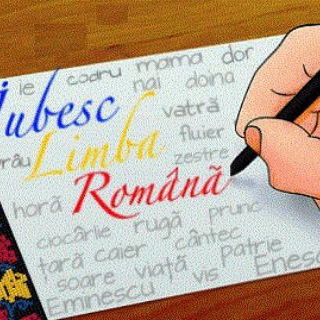 ie codru mama dor
nai doina
Iubesc
vatră
Limba
fluier
zestre
Română
horă
prunc
ciocârlie rugă
țară caier cântec
patrie
soare viață vis
Eminescu